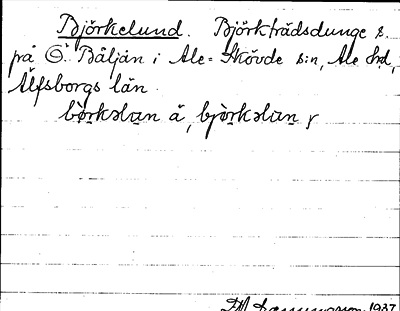 Björkelund. Björkträdsdunge s.
på Ö. Bäljan i Ale=Skövde s:n, Ale hd,
Älfsborgs län.
bö̀rkəlun ä, bjö̀rkəlun y
1937